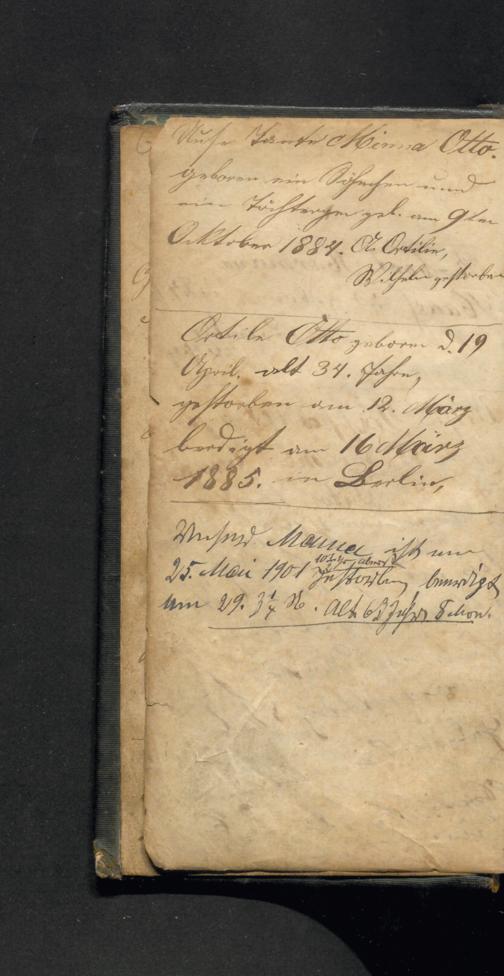 Unse Tante Minna Otto.
geboren ein Söhnchen und
ein Töchtergen geb. am 9ten
Ocktober 1884. O. Ottilie,
Wilhelm gestorben
Ottile Otto geboren d. 19
April. alt 34. Jahre,
gestorben am 12. März
berdigt am 16 März
1885. in Berlin,
Unsere Mama ist am
10 Uhr abend
25. Mai 1901 gestorben beerdigt
am 29. 3/4 N. Alt 63 Jahr 8 Mon.